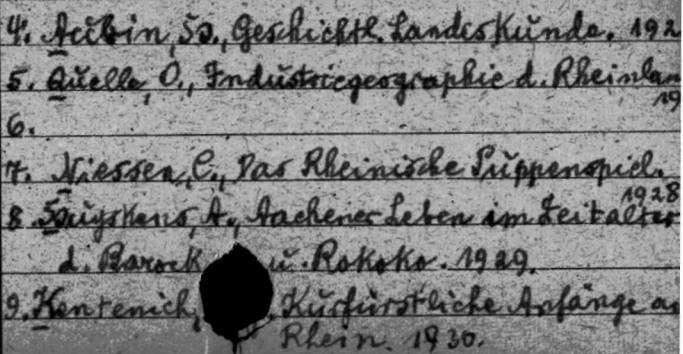 4. Aubin, H., Geschichtl. Landeskunde. 192
5. Quelle, O., Industriegeographie d. Rheinlan
19
6.
7. Niessen, C., Das Rheinische Puppenspiel.
1928
8. Huyskens, A., Aachener Leben im Zeitalter
d. Barock u. Rokoko. 1929.
9. Kentenich, Kurfürstliche Anfänge a
Rhein. 1930.